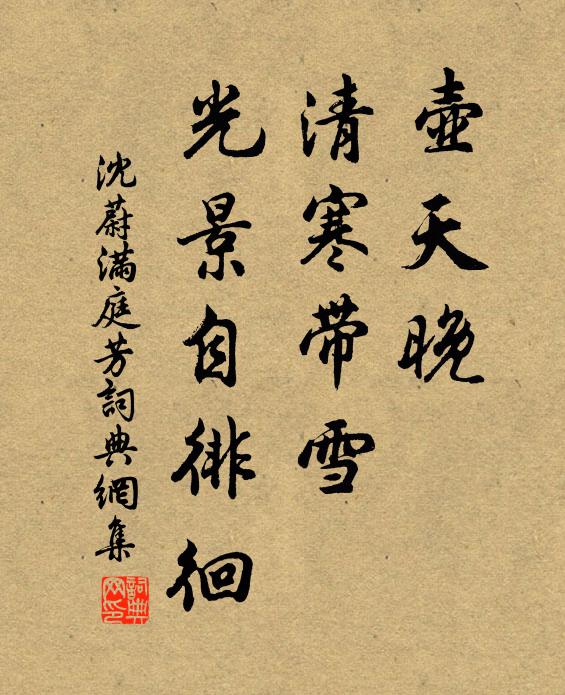 壶天晚
清寒带雪
光景自徘徊
沈蔚满庭芳詞典網集
詞典网印